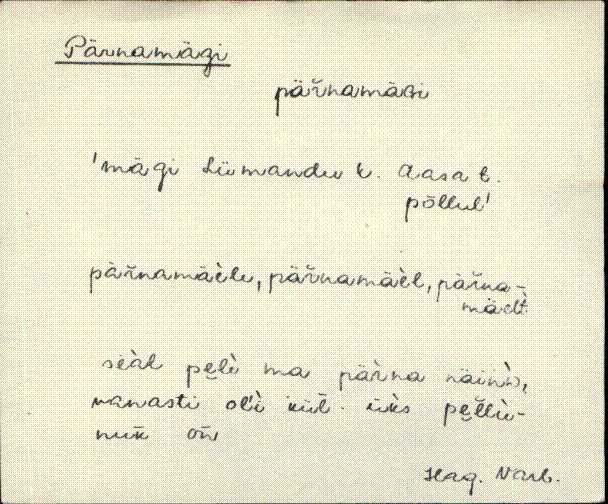 Pärnamägi
pär̆namäGi
'mägi Liimandu k. Aasa t.
põllul'
pär̆namäèle, pär̆namäèl, pär̆na-
mäelt̀
seàl pe̮lè ma pär̀na näinù,
vanasti ol'ì küll. üks pe̮l̆lù-
nuk̄ oǹ
Hag. Varb.